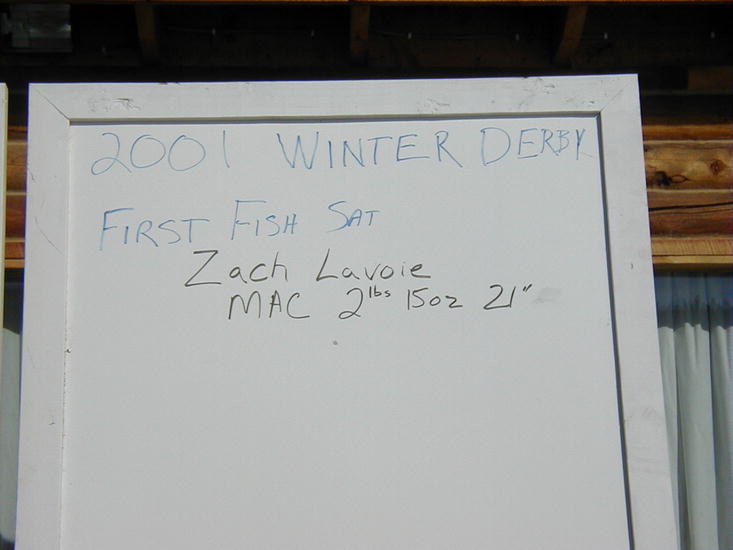 2001 WINTER DERBY
FIRST FISH SAT
Zach Lavoie
MAC 2lbs 15oz 21"